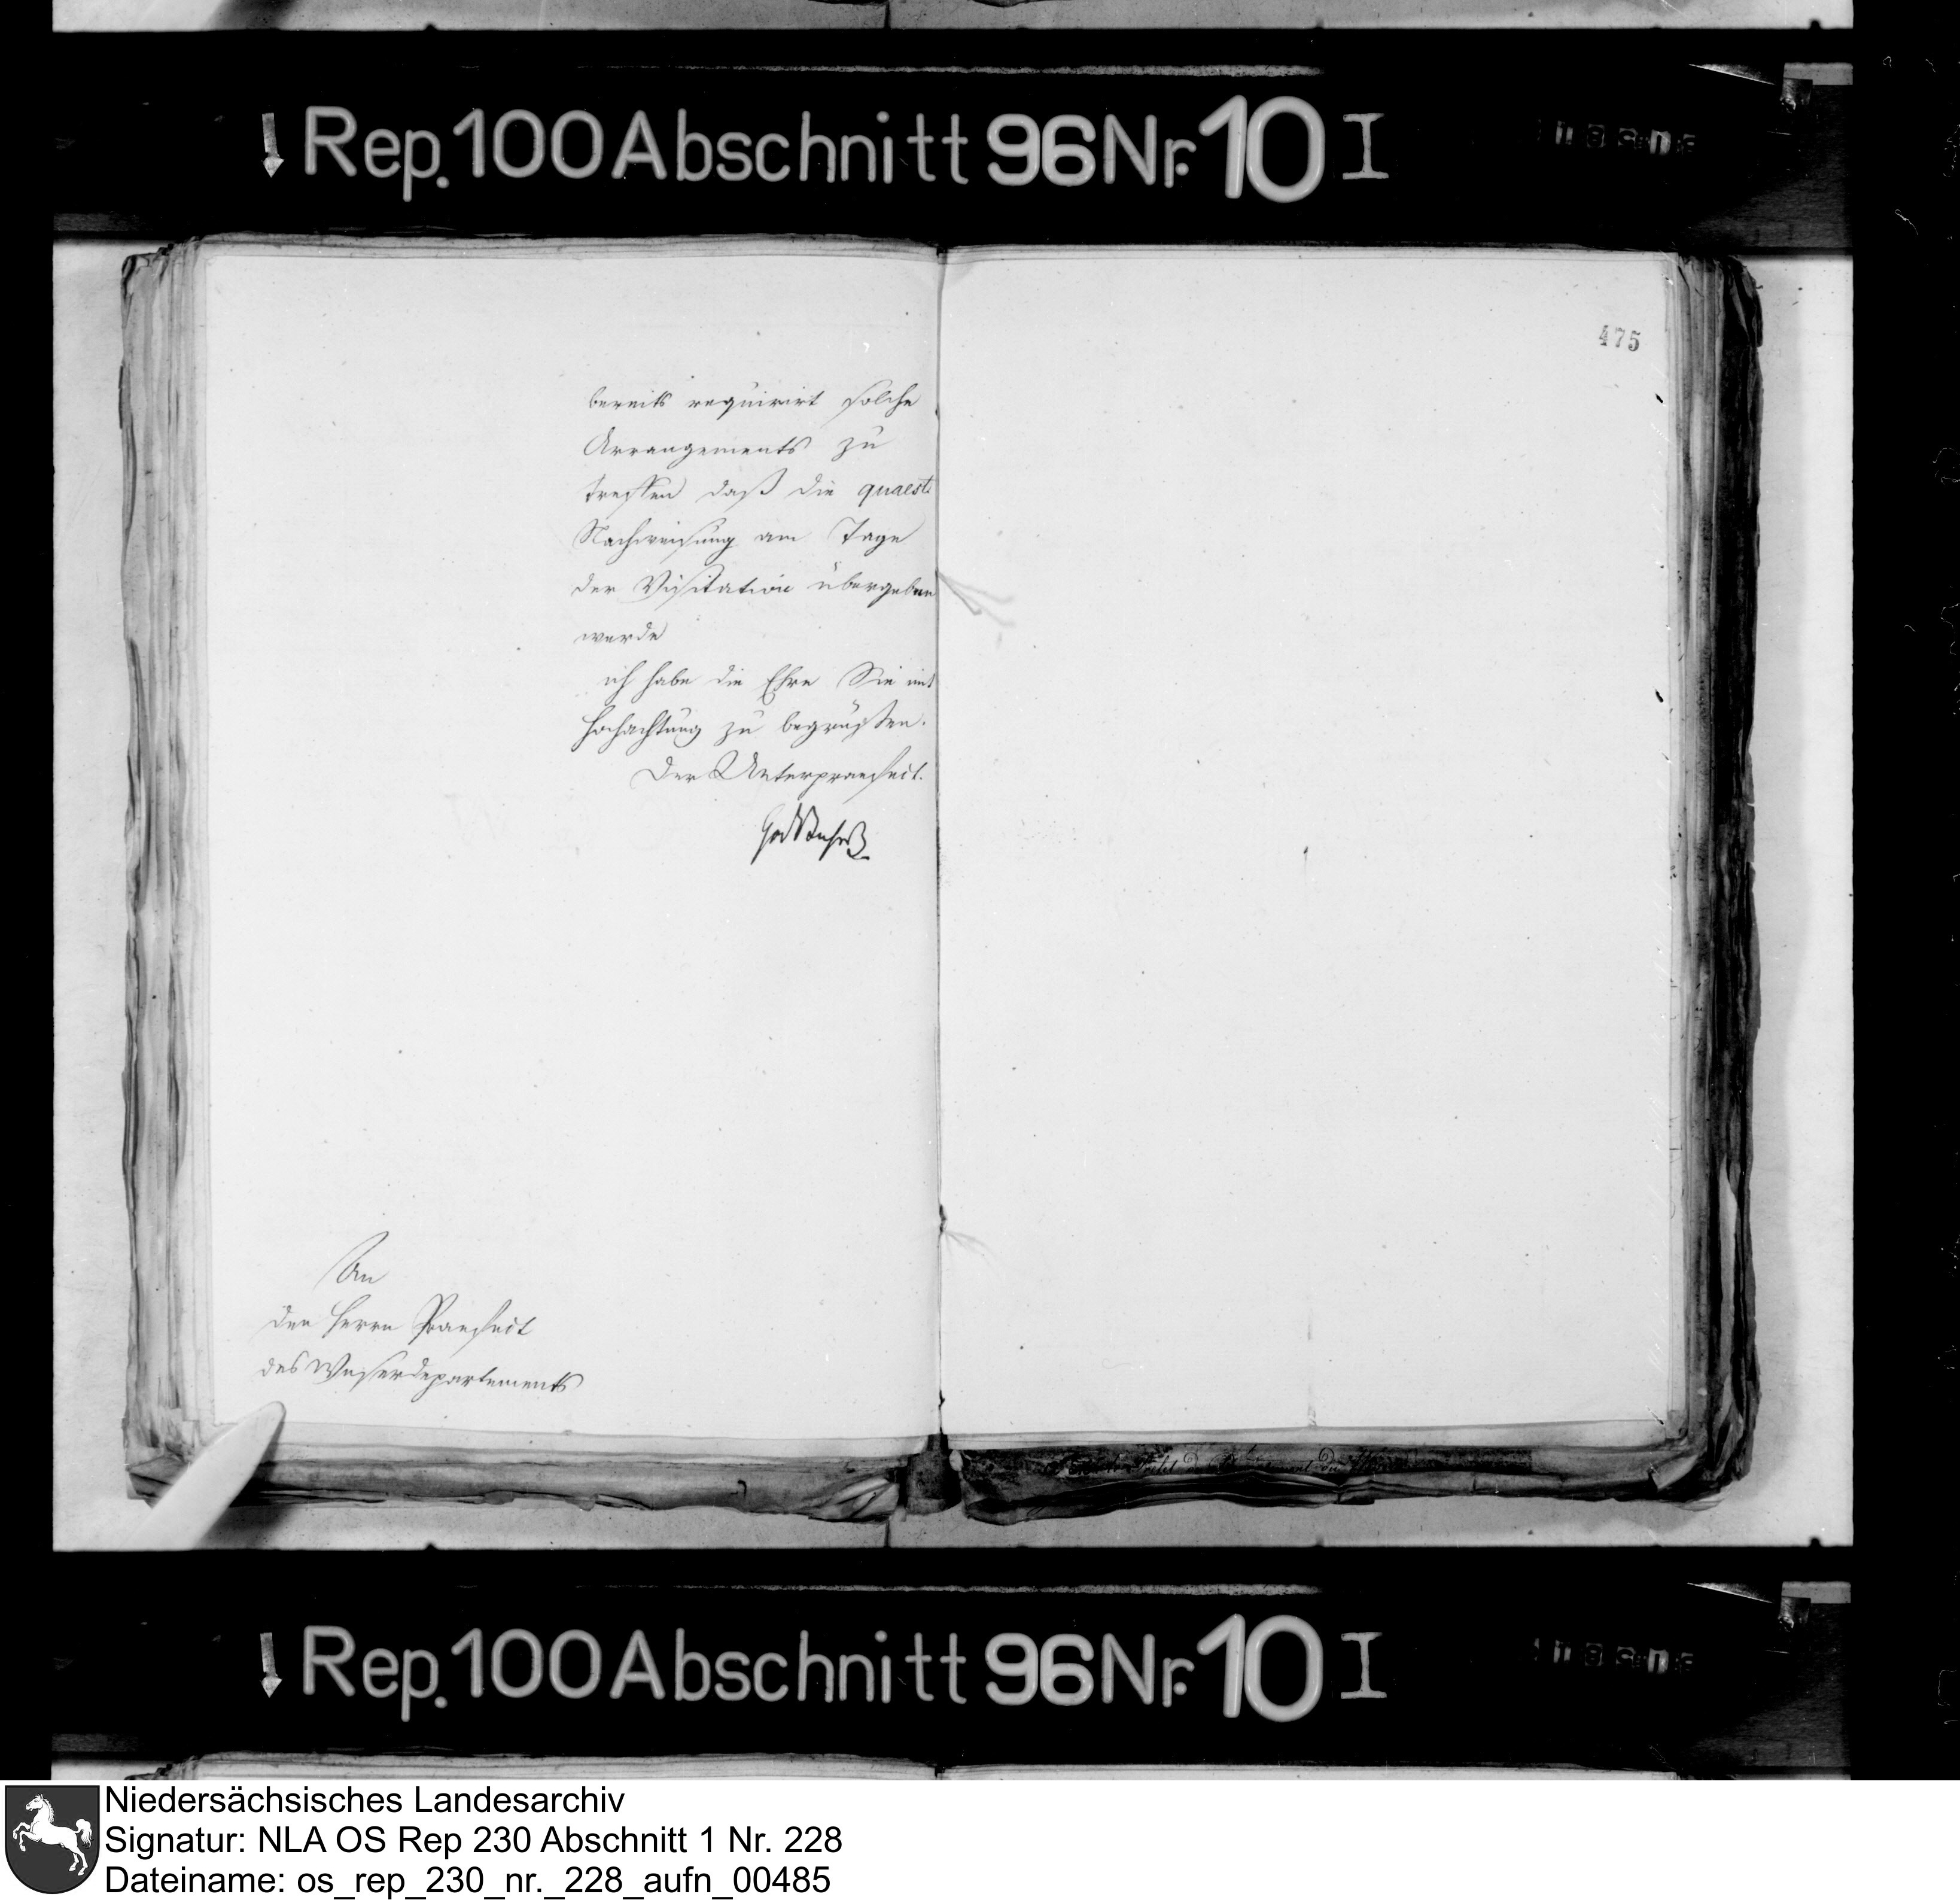 Rep. 100 Abschnitt 96 Nr. 10 I
475
bereits requirirt solche
Arrangements zu
treffen daß die quaest.
Nachweisung am Tage
der Visitation übergeben
werde
ich habe die Ehre Sie mit
Hochachtung zu begrüßen.
Der Unterpraefect.
An
den Herrn Praefect
des Weserdepartements
Rep. 100 Abschnitt 96 Nr. 10 I
Niedersächsisches Landesarchiv
Signatur: NLA OS Rep 230 Abschnitt 1 Nr. 228
Dateiname: os_rep_230_nr._228_aufn_00485